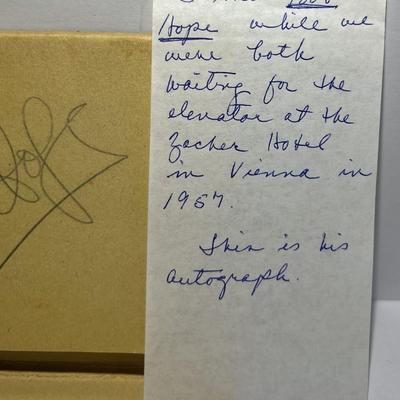 Hope while we
were both
waiting for the
elevator at the
Zacher Hotel
in Vienna in
1957.
This is his
autograph.